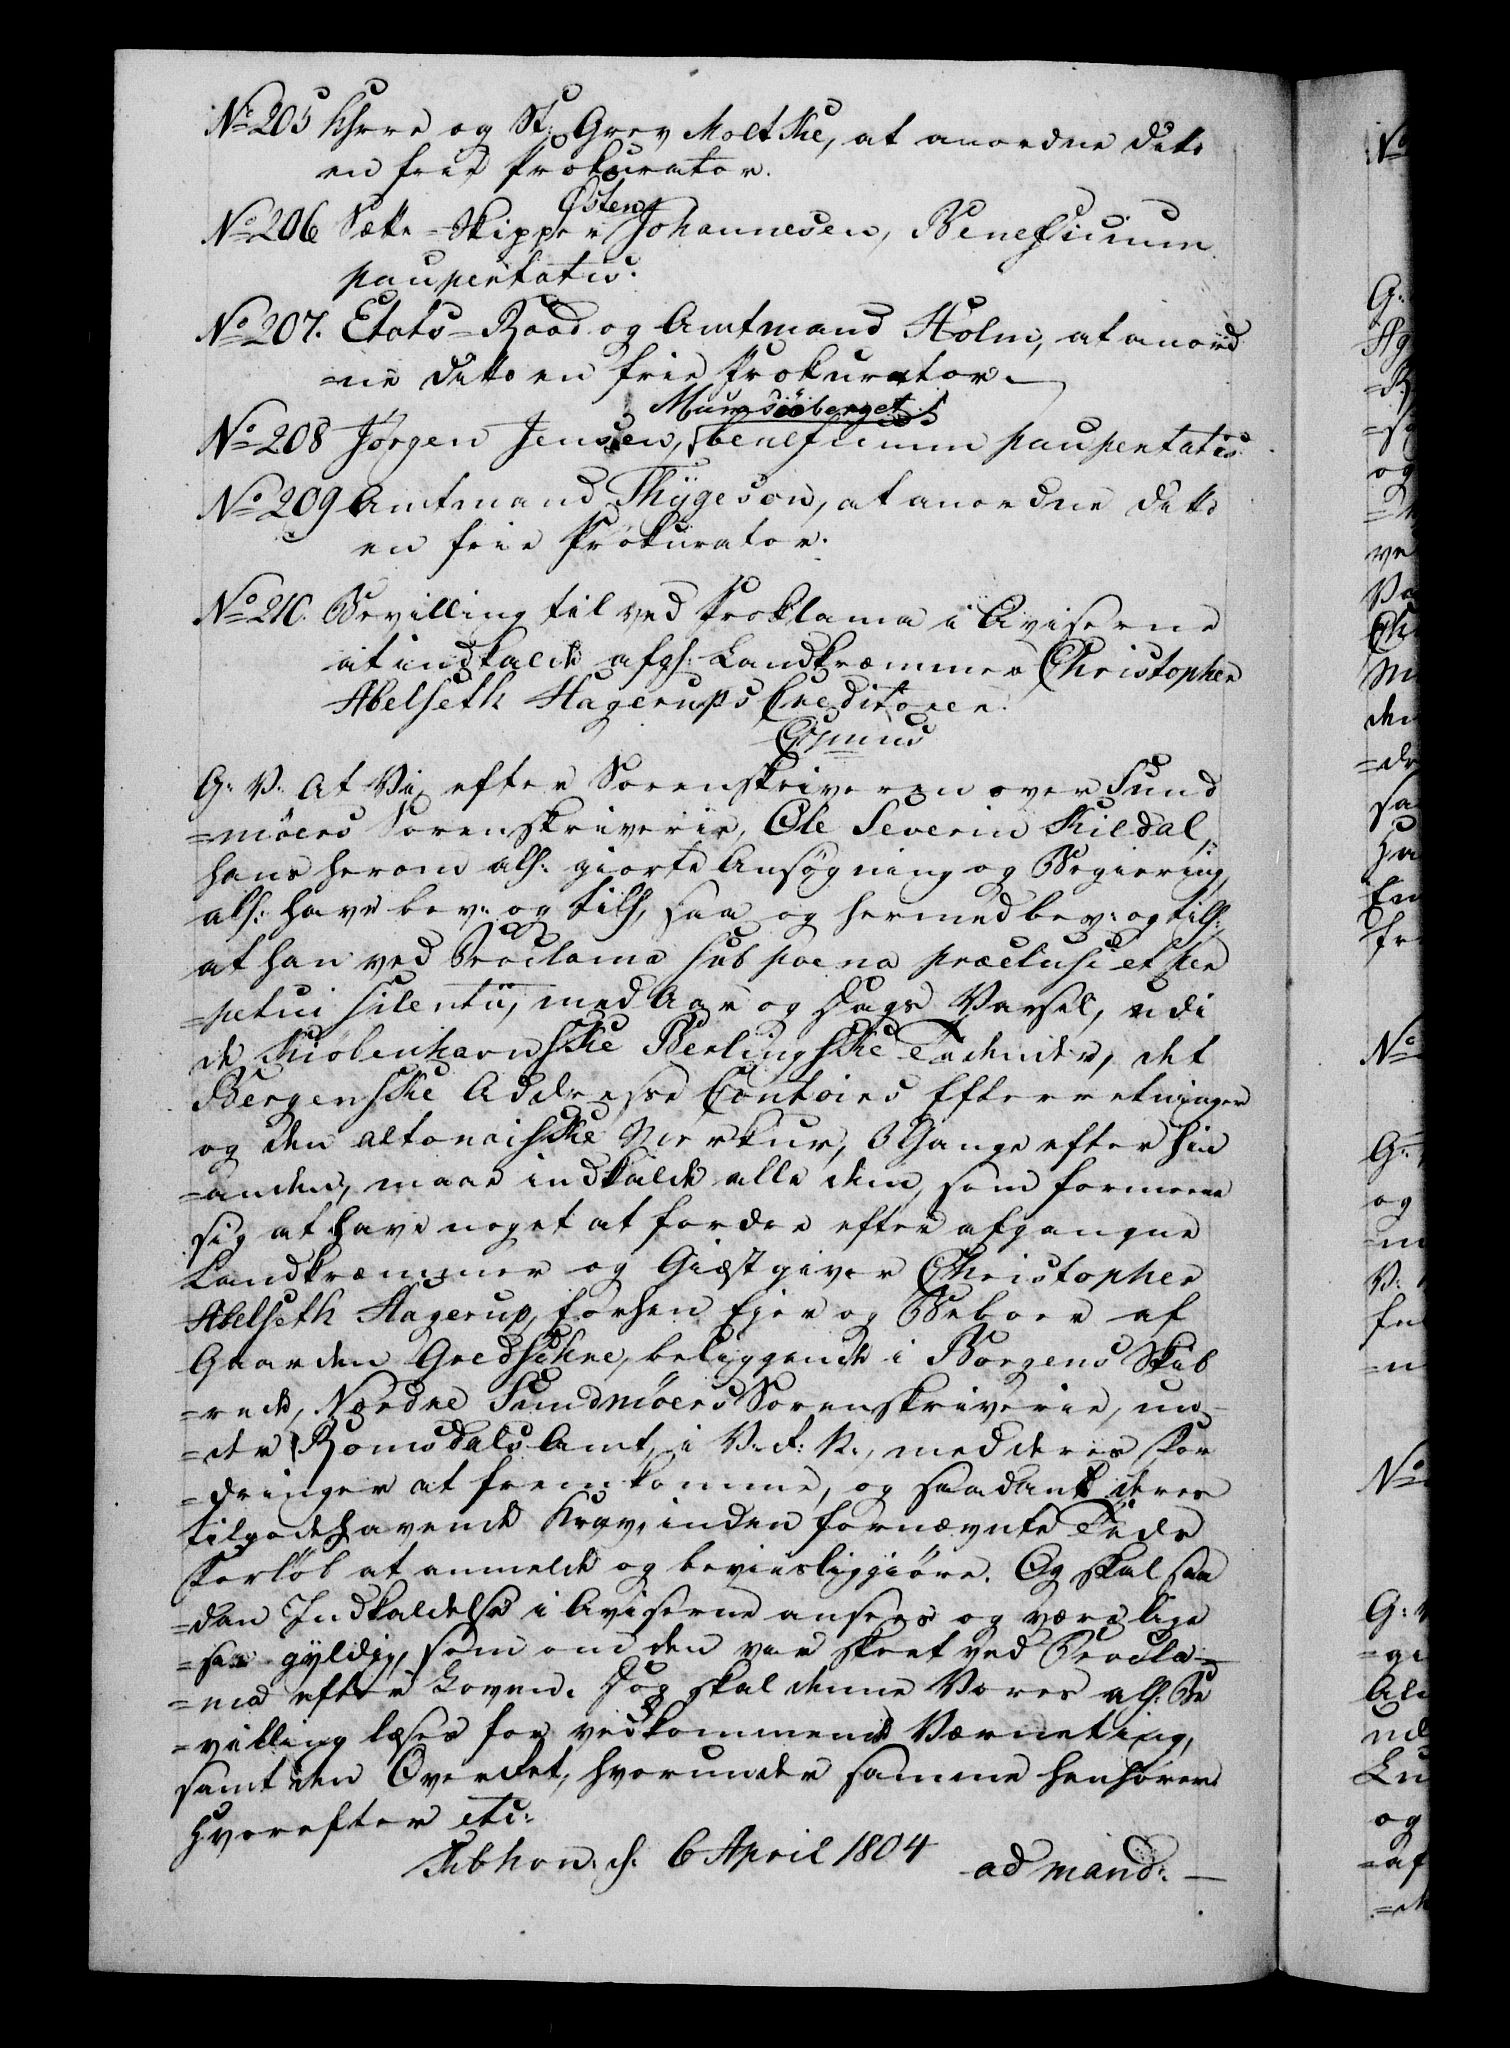 No 205 Khrre og St: Grev Moltke, at anordne dito
en frie Prokurator.
Østen
No 206 Sekke=Skipper Johannesen, Beneficium
paupertatis.
No 207. Etats=Raad og Amtmand Holm, at anord
=ne dito en frie Prokurator.
No 208 Jørgen Jensen, beneficium paupertatis
No 209 Amtmand Thygeson, at anordne dito
en frie Prokurator.
No 210. Bevilling til ved Proklama i Aviserne
at indkalde afg: Landkræmmer Christopher
Abelseth Hagerups Creditorer.
G: V: At Vi efter Sorenskriveren over Sund
=möers Sorenskriverie, Ole Severin Kildal,
hans herom all: giorte Ansøgning og Begiering,
all: have bev: og till, saa og hermed bev: og till:
at han ved Proclama sub poena præclusi et per
=petui silentii, med Aar og Dags Varsel, udi
de Kiöbenhavnske Berlingske Tidender, det
Bergenske Addresse Contoirs Efterretninger
og den altonaiske Merkur, 3 Gange efter hin
=anden, maae indkalde alle dem, som formene
sig at have noget at fordre efter afgangne
Landkræmmer og Giæstgiver Christopher
Abelseth Hagerup, forhen Ejer og Beboer af
Gaarden beliggende i Borgens Skib
=rede, Nordre Sundmöers Sorenskriverie, un=
=der Romsdals Amt, i V: R: N:, med deres For
=dringer at fremkomme, og saadant deres
tilgodehavende Krav, inden fornævnte Tids
Forlöb at anmelde og beviisliggiöre. Og skal saa
=dan Indkaldelse i Aviserne ansees og være lige
=saa gyldig, som om den var skeet ved Procla=
=ma efter Loven. Dog skal denne Vores all: Be
=villing læses for vedkommende Værneting,
samt den Overret, hvorunder samme henhører
Hvorefter etc:
Kbhvn. d: 6 April 1804 ad mand: